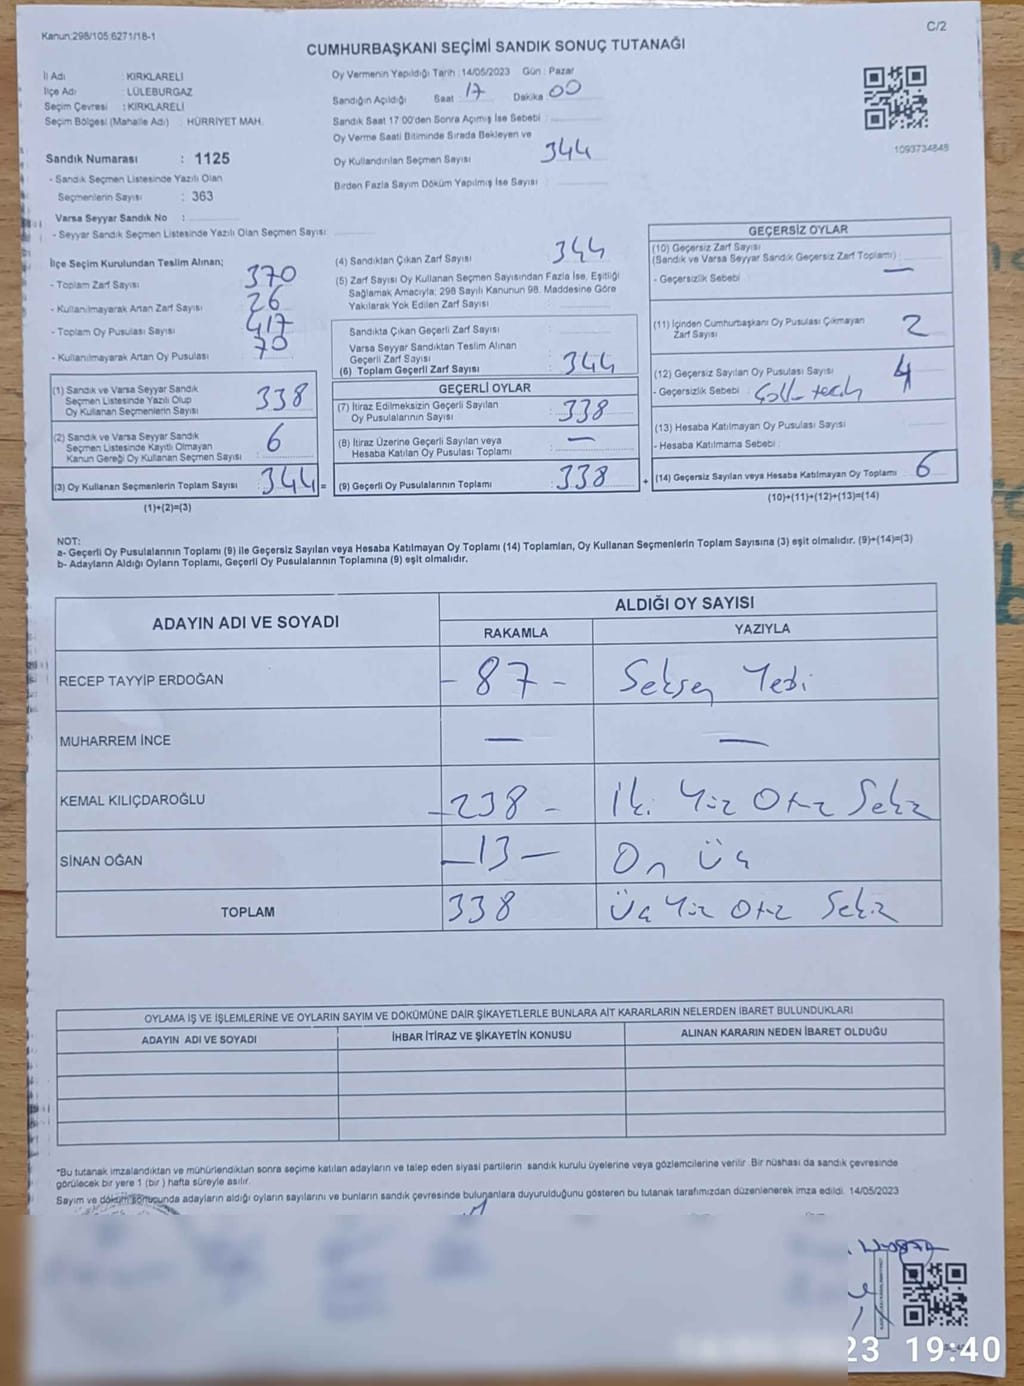 Kanun:298/105 6271/18-1
C/2
CUMHURBAŞKANI SEÇİMİ SANDIK SONUÇ TUTANAĞI
İl Adı : KIRKLARELİ
İlçe Adı : LÜLEBURGAZ
Seçim Çevresi : KIRKLARELİ
Seçim Bölgesi (Mahalle Adı) : HÜRRİYET MAH.
Sandık Numarası : 1125
- Sandık Seçmen Listesinde Yazılı Olan
Seçmenlerin Sayısı : 363
Varsa Seyyar Sandık No :
- Seyyar Sandık Seçmen Listesinde Yazılı Olan Seçmen Sayısı:
Oy Vermenin Yapıldığı Tarih : 14/05/2023 Gün : Pazar
Sandığın Açıldığı Saat 17 Dakika 00
Sandık Saat 17:00'den Sonra Açımış İse Sebebi :
Oy Verme Saati Bitiminde Sırada Bekleyen ve
Oy Kullandırılan Seçmen Sayısı : 344
Birden Fazla Sayım Döküm Yapılmış İse Sayısı :
1093734848
İlçe Seçim Kurulundan Teslim Alınan;
- Toplam Zarf Sayısı 370
- Kullanılmayarak Artan Zarf Sayısı 26
- Toplam Oy Pusulası Sayısı 417
- Kullanılmayarak Artan Oy Pusulası 70
(1) Sandık ve Varsa Seyyar Sandık
Seçmen Listesinde Yazılı Olup
Oy Kullanan Seçmenlerin Sayısı : 338
(2) Sandık ve Varsa Seyyar Sandık
Seçmen Listesinde Kayıtlı Olmayan
Kanun Gereği Oy Kullanan Seçmen Sayısı : 6
(3) Oy Kullanan Seçmenlerin Toplam Sayısı : 344 =
(1)+(2)=(3)
(4) Sandıktan Çıkan Zarf Sayısı : 344
(5) Zarf Sayısı Oy Kullanan Seçmen Sayısından Fazla İse, Eşitliği
Sağlamak Amacıyla; 298 Sayılı Kanunun 98. Maddesine Göre
Yakılarak Yok Edilen Zarf Sayısı :
Sandıkta Çıkan Geçerli Zarf Sayısı :
Varsa Seyyar Sandıktan Teslim Alınan
Geçerli Zarf Sayısı :
(6) Toplam Geçerli Zarf Sayısı : 344
GEÇERLİ OYLAR
(7) İtiraz Edilmeksizin Geçerli Sayılan
Oy Pusulalarının Sayısı : 338
(8) İtiraz Üzerine Geçerli Sayılan veya
Hesaba Katılan Oy Pusulası Toplamı : —
(9) Geçerli Oy Pusulalarının Toplamı : 338 +
GEÇERSİZ OYLAR
(10) Geçersiz Zarf Sayısı
(Sandık ve Varsa Seyyar Sandık Geçersiz Zarf Toplamı) : —
- Geçersizlik Sebebi :
(11) İçinden Cumhurbaşkanı Oy Pusulası Çıkmayan
Zarf Sayısı : 2
(12) Geçersiz Sayılan Oy Pusulası Sayısı : 4
- Geçersizlik Sebebi :
(13) Hesaba Katılmayan Oy Pusulası Sayısı :
- Hesaba Katılmama Sebebi :
(14) Geçersiz Sayılan veya Hesaba Katılmayan Oy Toplamı : 6
(10)+(11)+(12)+(13)=(14)
NOT:
a- Geçerli Oy Pusulalarının Toplamı (9) ile Geçersiz Sayılan veya Hesaba Katılmayan Oy Toplamı (14) Toplamları, Oy Kullanan Seçmenlerin Toplam Sayısına (3) eşit olmalıdır. (9)+(14)=(3)
b- Adayların Aldığı Oyların Toplamı, Geçerli Oy Pusulalarının Toplamına (9) eşit olmalıdır.
ADAYIN ADI VE SOYADI
ALDIĞI OY SAYISI
RAKAMLA YAZIYLA
RECEP TAYYİP ERDOĞAN - 87 - Seksen Yedi
MUHARREM İNCE — —
KEMAL KILIÇDAROĞLU - 238 - İki Yüz Otuz Sekiz
SİNAN OĞAN - 13 - On Üç
TOPLAM 338 Üç Yüz Otuz Sekiz
OYLAMA İŞ VE İŞLEMLERİNE VE OYLARIN SAYIM VE DÖKÜMÜNE DAİR ŞİKAYETLERLE BUNLARA AİT KARARLARIN NELERDEN İBARET BULUNDUKLARI
ADAYIN ADI VE SOYADI İHBAR İTİRAZ VE ŞİKAYETİN KONUSU ALINAN KARARIN NEDEN İBARET OLDUĞU
*Bu tutanak imzalandıktan ve mühürlendikten sonra seçime katılan adayların ve talep eden siyasi partilerin sandık kurulu üyelerine veya gözlemcilerine verilir. Bir nüshası da sandık çevresinde
görülecek bir yere 1 (bir ) hafta süreyle asılır.
Sayım ve döküm sonucunda adayların aldığı oyların sayılarını ve bunların sandık çevresinde bulunanlara duyurulduğunu gösteren bu tutanak tarafımızdan düzenlenerek imza edildi. 14/05/2023
23 19:40